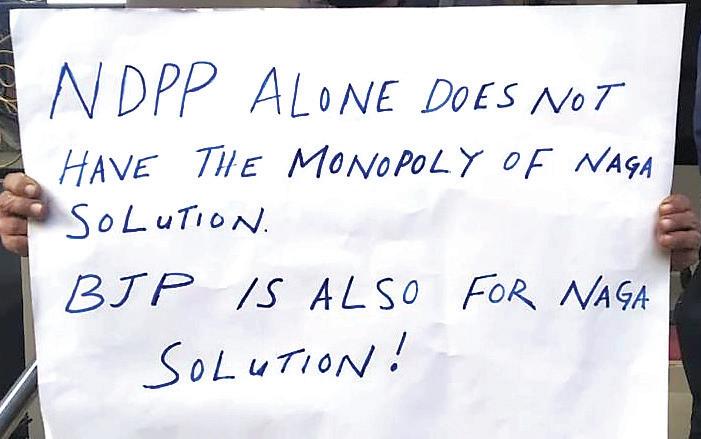 NDPP ALONE DOES NOT
HAVE THE MONOPOLY OF NAGA
SOLUTION.
BJP IS ALSO FOR NAGA
SOLUTION!